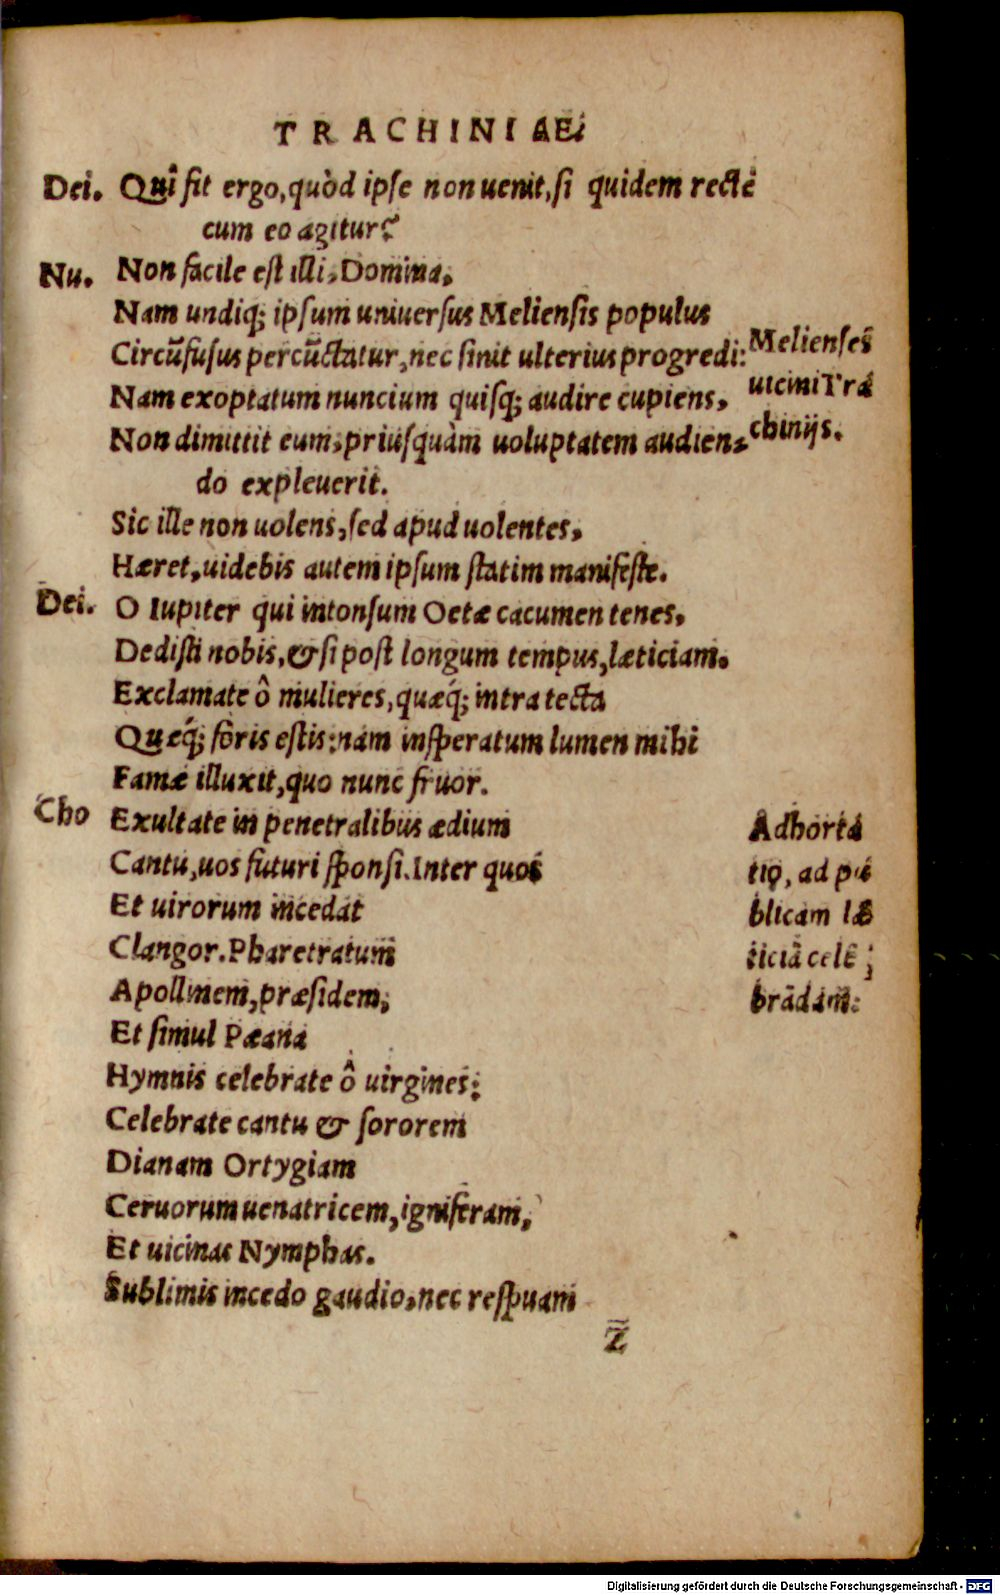 TRACHINIAE
Dei. Quî fit ergo, quòd ipse non uenit, si quidem recte
cum eo agitur?
Nu. Non facile est illi, Domina,
Nam undiq; ipsum uniuersus Meliensis populus
Circũfusus percũctatur, nec sinit ulterius progredi:
Nam exoptatum nuncium quisq; audire cupiens,
Non dimittit eum, priusquàm uoluptatem audien-
do expleuerit.
Sic ille non uolens, sed apud uolentes,
Hæret, uidebis autem ipsum statim manifeste.
Dei. O Iupiter qui intonsum Oetæ cacumen tenes,
Dedisti nobis, & si post longum tempus, læticiam.
Exclamate ô mulieres, quæq́; intra tecta
Quæq́; foris estis: nam insperatum lumen mihi
Famæ illuxit, quo nunc fruor.
Cho Exultate in penetralibus ædium
Cantu, uos futuri sponsi. Inter quos
Et uirorum incedat
Clangor. Pharetratum
Apollinem, præsidem,
Et simul Pæana
Hymnis celebrate ô uirgines:
Celebrate cantu & sororem
Dianam Ortygiam
Ceruorum uenatricem, igniferam,
Et uicinas Nymphas.
Sublimis incedo gaudio, nec respuam
Z
Melienses
uicini Tra
chinijs.
Adhorta
tio, ad pu
blicam læ
ticiã cele
brãdam.
Digitalisierung gefördert durch die Deutsche Forschungsgemeinschaft - DFG